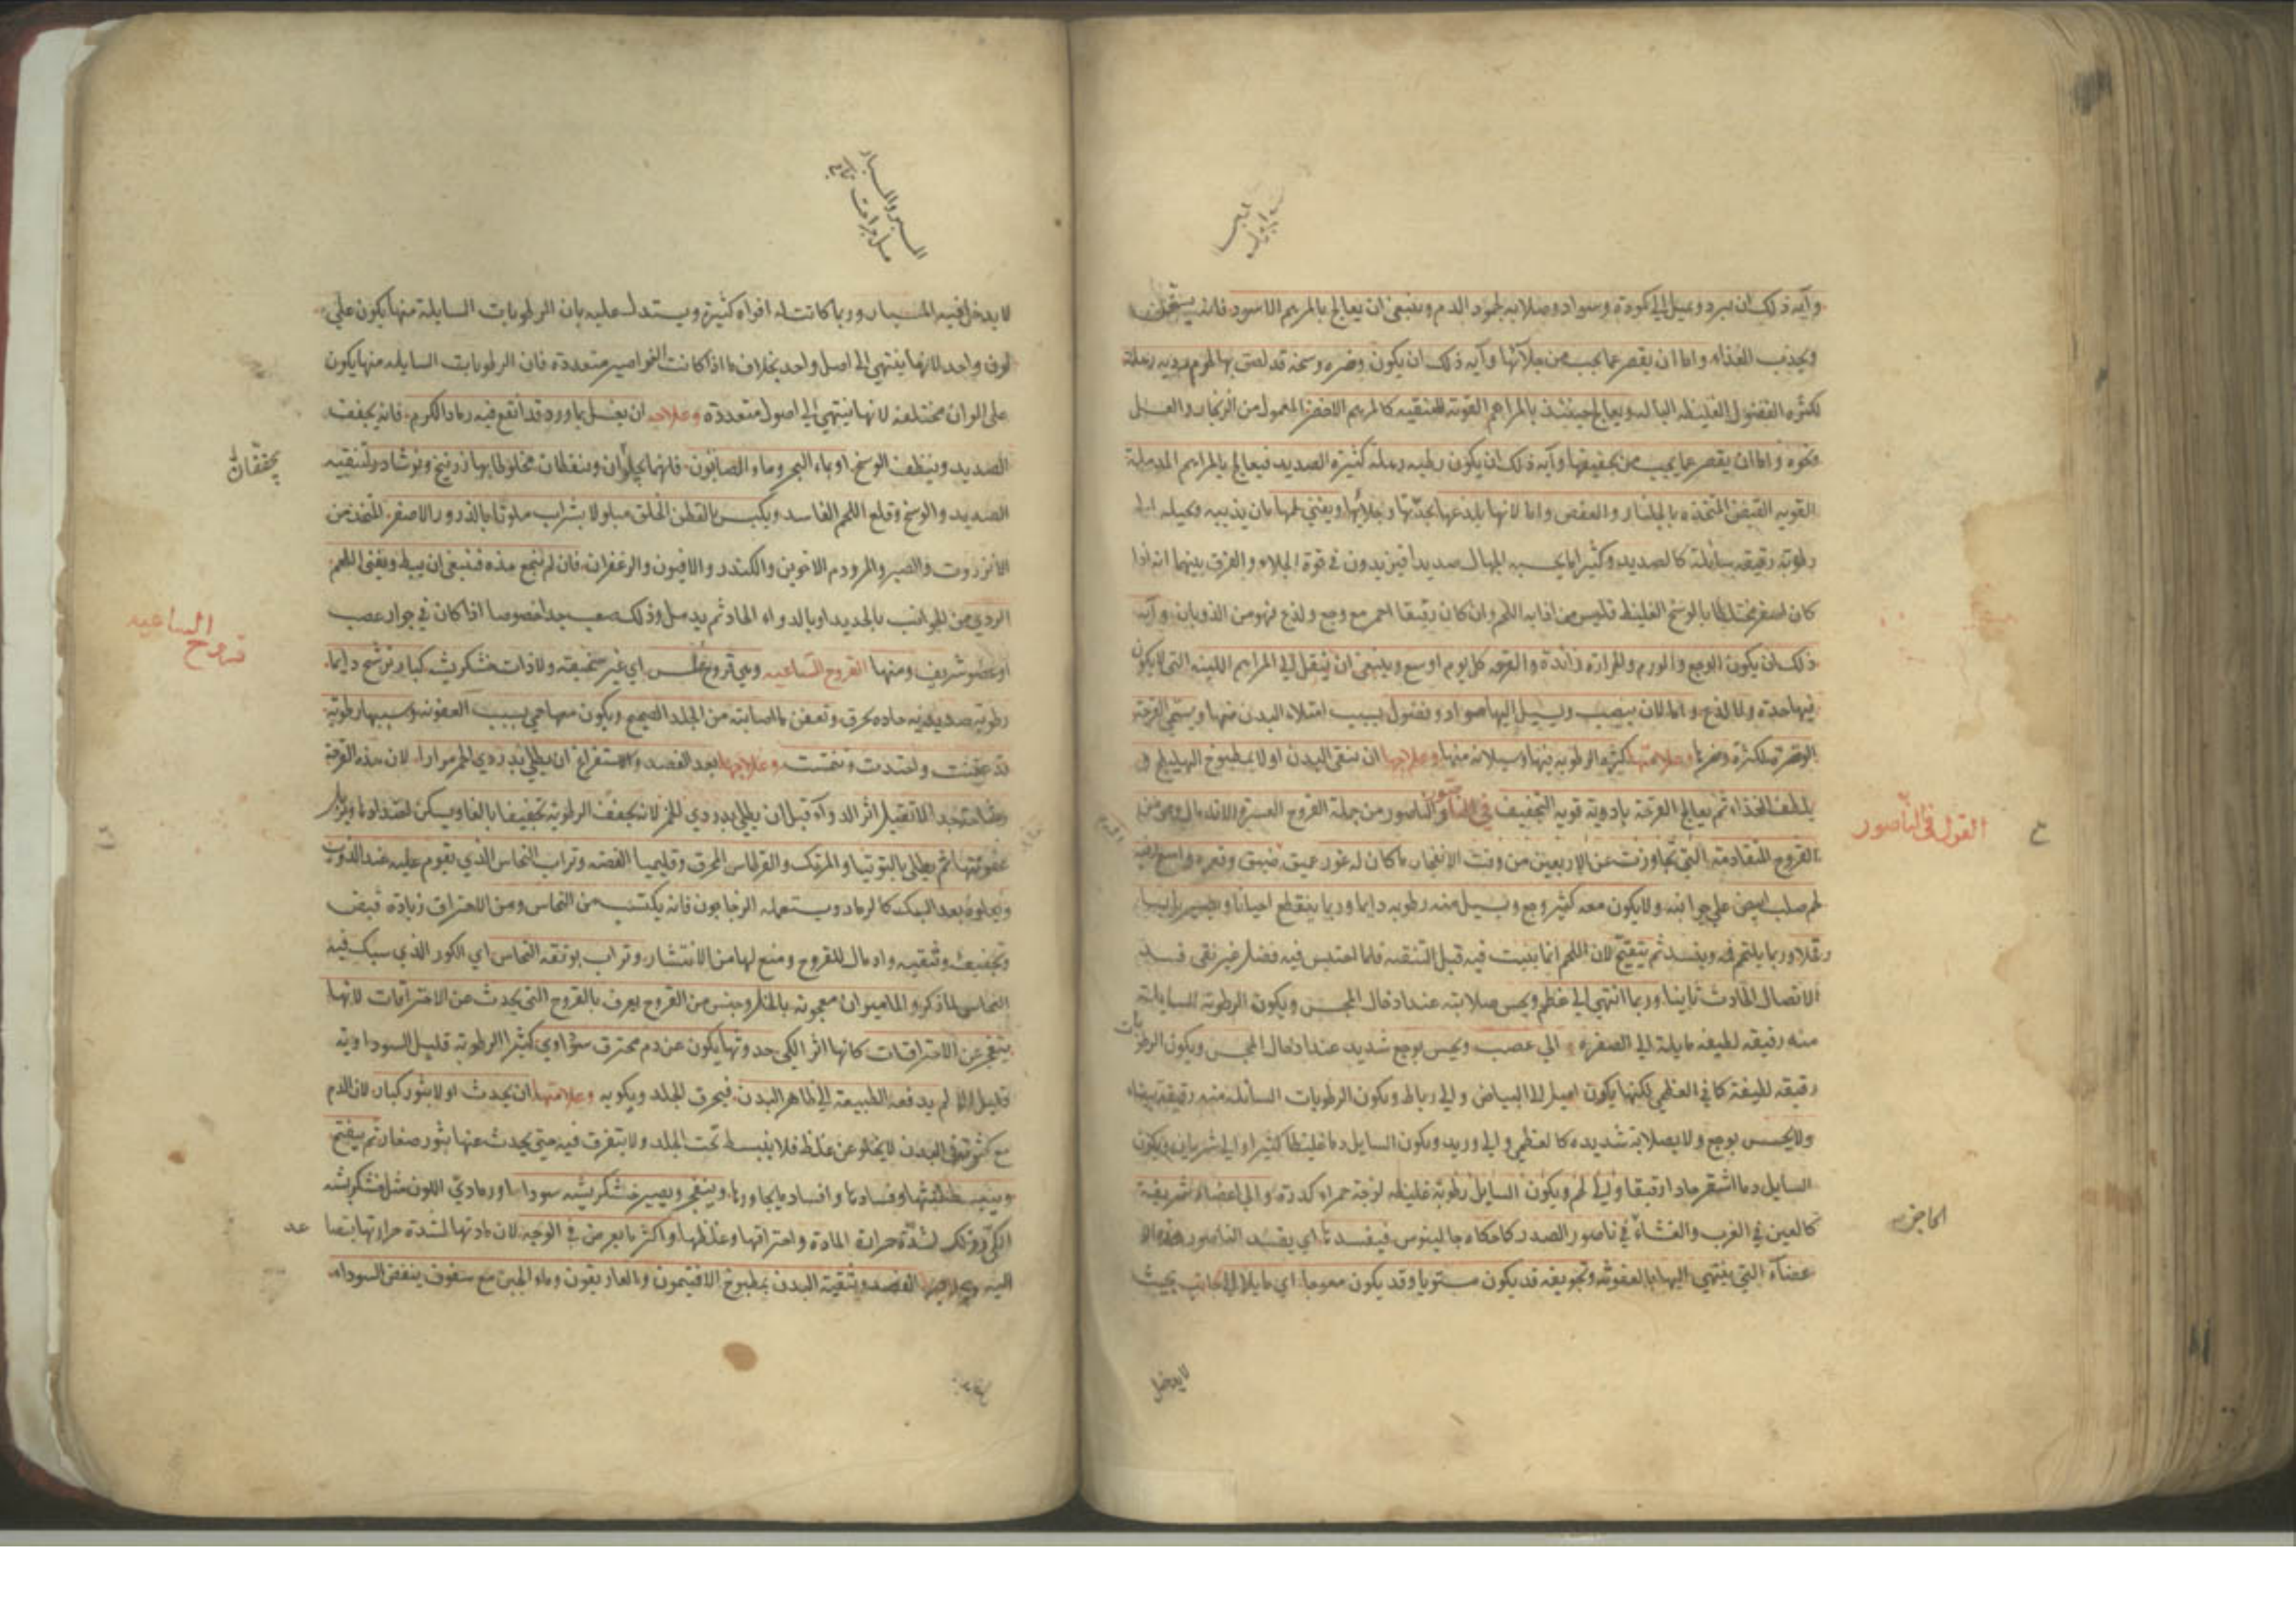 وآية ذلك ان يبرد ويميل الى كمودة وسواد وصلابة لجمود الدم وينبغى ان يعالج بالمرهم الاسود فانه يسخن
ويجذب الغذاء واما ان يقصر عما يجب من جلآئها وآية ذلك ان يكون وضره وسخة قد لصق بها المرهم رهلة
لكثرة الفضول الغليظة البالية ويعالج حينئذ بالمراهم القوية التنقية كالمرهم الاخضر المعمول من الزنجار والعسل
ونحوه واما ان يقصر عما يجب من تجفيفها وآية ذلك ان يكون رطبة رهلة كثيرة الصديد فيعالج بالمراهم المدملة
القوية القبض المتخذة بالجلنار والعفص واما لانها يلذعها بحدتها وجلائها ويفنى لحمها بان يذيبه ويحيله الى
رطوبة رقيقة سائلة كالصديد وكثيرا ما يحسبه الجهال صديدا فيزيدون فى قوة الجلاء والفرق بينهما انه اذا
كان اصفر مختلطا بالوسخ الغليظ فليس من اذابة اللحم وان كان رقيقا احمر مع وجع ولذع فهو من الذوبان وآية
ذلك ان يكون الوجع والورم والحرارة زائدة والقرحة كل يوم اوسع وينبغى ان ينقل الى المراهم اللينة التى لا يكون
فيها حدة ولا لذع واما لان ينصب ويسيل اليها مواد وفضول بسبب امتلاء البدن منها ويسمى القرحة
الوضرة لكثرة وضرها وعلامتها كثرة الرطوبة فيها وسيلانه منها وعلاجها ان ينقى البدن اولا بمطبوخ الهليلج و
يلطف الغذاء ثم يعالج القرحة بادوية قوية التجفيف فى الناصور الناصور من جملة القروح العسرة الاندمال وهى من
القروح المتقادمة التى تجاوزت عن الاربعين من وقت الانفجار ما كان له غور عميق ضيق وقعره واسع وفيه
لحم صلب ابيض على جوانبه ولا يكون معه كثير وجع ويسيل منه رطوبة دايما وربما ينقطع احيانا ويصير يابسا
وقلا وربما يلتحم فمه ويفسد ثم يتقيح لان اللحم انما ينبت فيه قبل التنقية فلما احتبس فيه فضل غير نقى فسد
الاتصال الحادث ثانيا وربما انتهى الى عظم ويحس صلابته عند ادخال المجس ويكون الرطوبة السايلة
منه رقيقة لطيفة مايلة الى الصفرة الى عصب ويحس بوجع شديد عند ادخال المجس ويكون الرطوبات
رقيقة لطيفة كما فى العظمى لكنها يكون اميل الى البياض والى رباط ويكون الرطوبات السائلة منه رقيقة بيضاء
ولا يحسس بوجع ولا بصلابة شديدة كالعظمى والى وريد ويكون السايل دما غليظا كثيرا والى شريان ويكون
السايل دما اشقر حادا رقيقا والى لحم ويكون السايل رطوبة غليظة لزجة حمراء كدرة والى اعضاء شريفة
كالعين فى الغرب والغشاء فى ناصور الصدر كما حكاه جالينوس فيفسدها اى يفسد الناصور هذه الا
عضاء التى ينتهى اليها بالعفونة وتجويفه قد يكون مستويا وقد يكون معوجا اى مايلا الى جانب بحيث
القول فى الناصور
لايدخل
لا يدخل فيه المسبار وربما كانت له افواه كثيرة ويستدل عليه بان الرطوبات السايلة منها يكون على
لون واحد لانها ينتهى الى اصل واحد بخلاف ما اذا كانت النواصير متعددة فان الرطوبات السايلة منها يكون
على الوان مختلفة لانها ينتهى الى اصول متعددة وعلاجه ان يغسل بماورد قد انقع فيه رماد الكرم فانه يجفف
الصديد وينظف الوسخ او بماء البحر وماء الصابون فانهما يجلوان وينقيان مخلوطا بهما زرنيخ ونوشادر لتنقية
الصديد والوسخ وقلع اللحم الفاسد ويكبس بالقطن الخلق مبلولا بشراب ملوثا بالذرور الاصفر المتخذ من
الانزروت والصبر والمر ودم الاخوين والكندر والافيون والزعفران فان لم ينجع هذه فينبغى ان يبط ويفنى اللحم
الردى من الجوانب بالحديد او بالدواء الحاد ثم يدمل وذلك صعب جدا خصوصا اذا كان فى جوار عصب
او عضو شريف ومنها القروح الساعية وهى قروح ملس اى غير عميقة ولا ذات خشكريشة كبار ترشح دايما
رطوبة صديدية حادة تحرق وتعفن ما اصابته من الجلد الصحيح ويكون معها حمى بسبب العفونة وسببها رطوبة
قد عفنت واحتدت وتخمتت وعلاجها بعد الفصد والاستفراغ ان يطلى بدردى الخمر مرارا لان هذه القرحة
عفونتها ثم يطلى بالتوتيا والمرتك والقرطاس المحرق وقليميا الفضة وتراب النحاس الذى يقوم عليه عند الذوب
ويعلوه بعد السبك كالرماد ويستعمله الزجاجون فانه يكتسب من النحاس ومن الاحتراق زيادة قبض
وتجفيف وتنقية وادمال للقروح ومنع لها من الانتشار وتراب بوتقة النحاس اى الكور الذى سبك فيه
النحاس لما ذكر والماميران معجونة بالخل وجنس من القروح يعرف بالقروح التى يحدث عن الاحتراقات لانها
ينفجر عن الاحتراقات كانها اثر الكى حدوثها يكون عن دم محترق سوداوى كثير الرطوبة قليل السوداوية
قليل لم يدفعه الطبيعة الى ظاهر البدن فيحرق الجلد ويكويه وعلامتها ان يحدث اولا بثور كبار لان الدم
مع كثرته فى البدن لا يخلو عن غلظ فلا ينبسط تحت الجلد ولا يتفرق فيه حتى يحدث عنها بثور صغار ثم يتفتح
وينبسط وافساد ما يجاورها وينفجر ويصير خشكريشة سوداء او رمادى اللون مثل خشكريشة
الكى وذلك لشدة حرارة المادة واحتراقها وغلظها واكثر ما يعرض فى الوجه لان مادتها لشدة حرارتها يتصا
اليه وعلاجها الفصد وتنقية البدن بمطبوخ الافتيمون والغاريقون وماء الجبن مع سفوف ينفض السوداء
يجففان
قروح الساعيه
عد